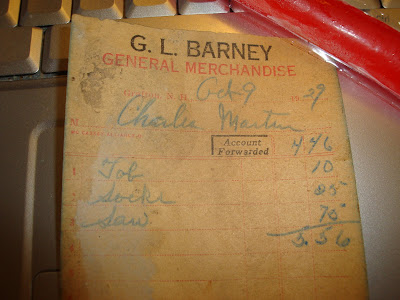 G. L. BARNEY
GENERAL MERCHANDISE
Grafton, N. H. Oct 9 19
M Charles Martin
Account Forwarded 4 46
Tob 10
Socks 25
Saw 75
5.56